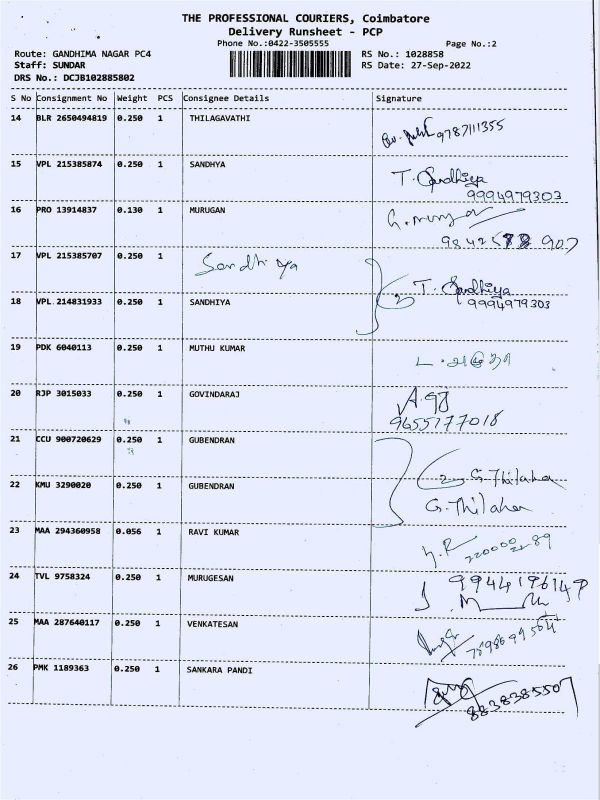 THE PROFESSIONAL COURIERS, Coimbatore
Delivery Runsheet - PCP
Phone No.:0422-3505555
Page No.:2
Route: GANDHIMA NAGAR PC4
RS No.: 1028858
Staff: SUNDAR
RS Date: 27-Sep-2022
DRS No.: DCJB102885802
S No Consignment No Weight PCS Consignee Details Signature
14 BLR 2650494819 0.250 1 THILAGAVATHI
9787111355
15 VPL 215385874 0.250 1 SANDHYA T. Sandhiya
9994979303
16 PRO 13914837 0.130 1 MURUGAN
17 VPL 215385707 0.250 1 Sandhiya
T. Sandhiya
18 VPL 214831933 0.250 1 SANDHIYA 9994979303
19 PDK 6040113 0.250 1 MUTHU KUMAR
20 RJP 3015033 0.250 1 GOVINDARAJ
9655177018
21 CCU 900720629 0.250 1 GUBENDRAN
G. Thilaha
22 KMU 3290020 0.250 1 GUBENDRAN
G. Thilaha
23 MAA 294360958 0.056 1 RAVI KUMAR
24 TVL 9758324 0.250 1 MURUGESAN
25 MAA 287640117 0.250 1 VENKATESAN
26 PMK 1189363 0.250 1 SANKARA PANDI
8838385507